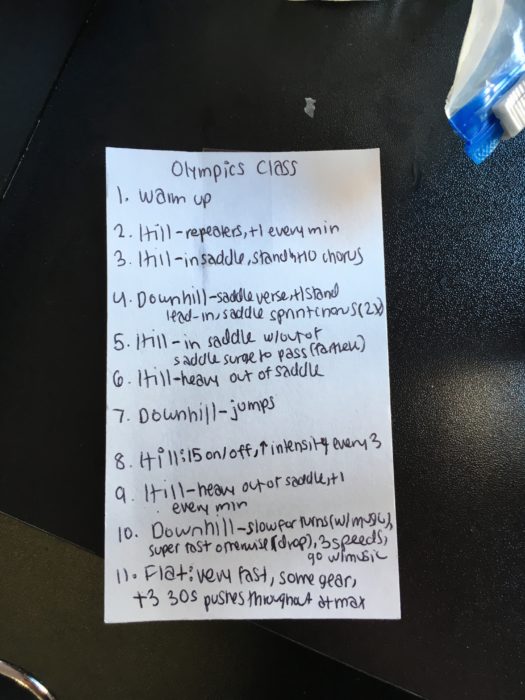 Olympics Class
1. Warm up
2. Hill-repeaters, +1 every min
3. Hill-in saddle, stand +10 chorus
4. Downhill-saddle verse, +1 stand
lead-in, saddle sprint chorus (2x)
5. Hill-in saddle w/out of
saddle surge to pass
6. Hill-heavy out of saddle
7. Downhill-jumps
8. Hill: 15 on/off, ↑ intensity every 3
9. Hill-heavy out of saddle, +1
every min
10. Downhill-slow for turns (w/music),
super fast otherwise (drop), 3 speeds,
go w/music
11. Flat: very fast, some gear,
+3 30s pushes throughout at max